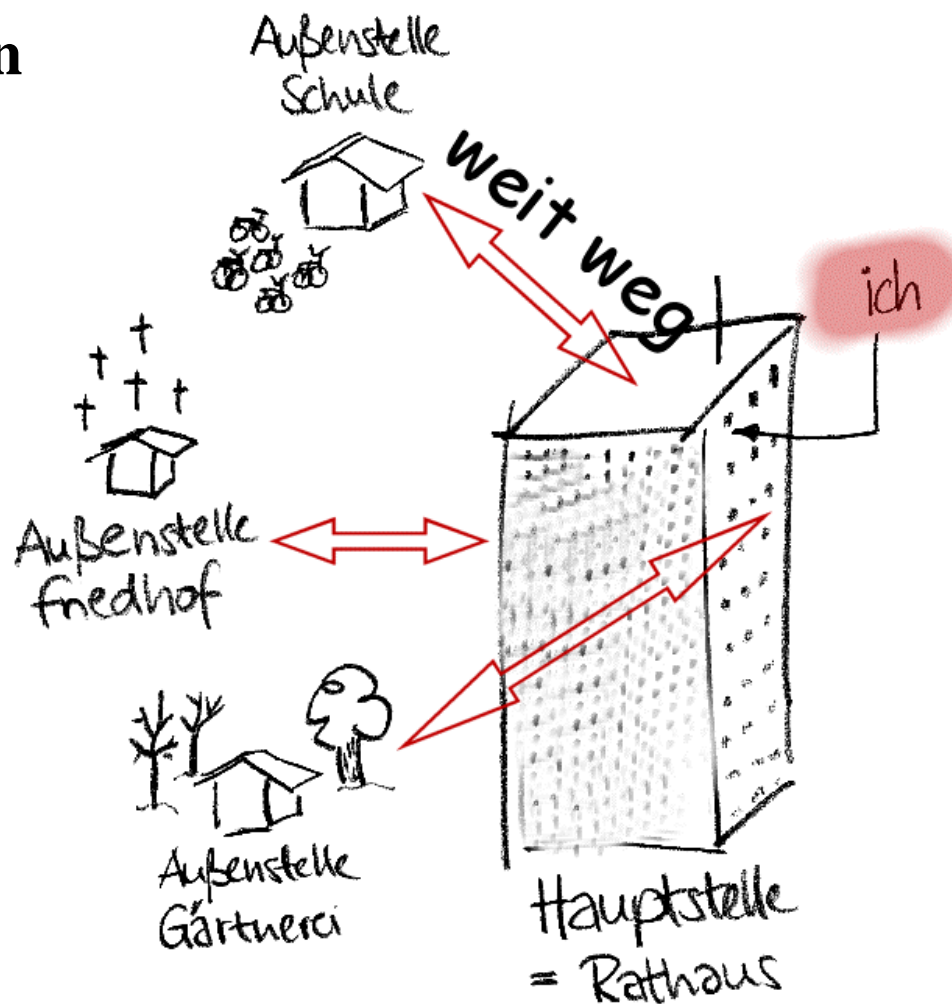 n
Außenstelle
Schule
weit weg
ich
Außenstelle
friedhof
Außenstelle
Gärtnerei
Hauptstelle
= Rathaus